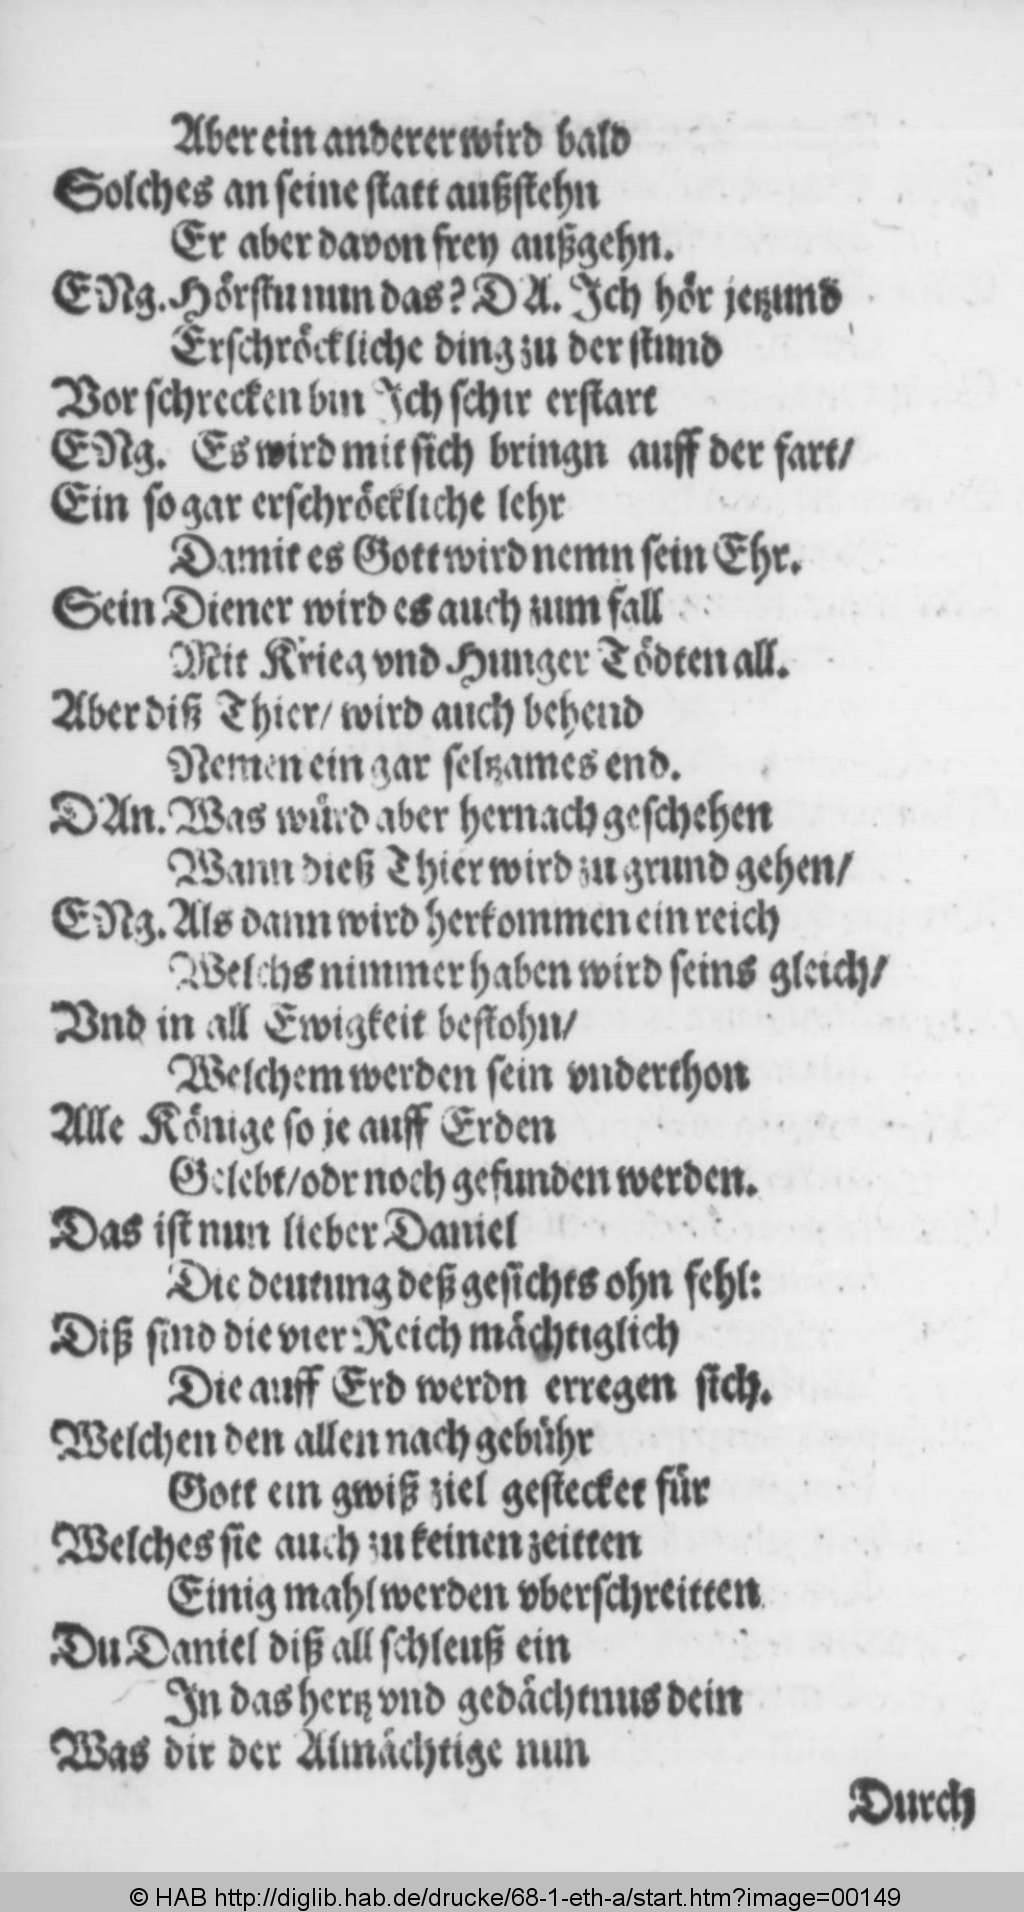 Aber ein anderer wird bald
Solches an seine statt außstehn
Er aber davon frey außgehn.
ENg. Hörstu nun das? DA. Ich hör jetzund
Erschröckliche ding zu der stund
Vor schrecken bin Ich schir erstart
ENg. Es wird mit sich bringn auff der fart/
Ein so gar erschröckliche lehr
Damit es Gott wird nemn sein Ehr.
Sein Diener wird es auch zum fall
Mit Krieg vnd Hunger Tödten all.
Aber diß Thier/ wird auch behend
Nemen ein gar seltzames end.
DAn. Was würd aber hernach geschehen
Wann dieß Thier wird zu grund gehen/
ENg. Als dann wird herkommen ein reich
Welchs nimmer haben wird seins gleich/
Vnd in all Ewigkeit bestohn/
Welchem werden sein vnderthon
Alle Könige so je auff Erden
Gelebt/ odr noch gefunden werden.
Das ist nun lieber Daniel
Die deutung deß gesichts ohn fehl:
Diß sind die vier Reich mächtiglich
Die auff Erd werdn erregen sich.
Welchen den allen nach gebühr
Gott ein gwiß ziel gestecket für
Welches sie auch zu keinen zeitten
Einig mahl werden vberschreitten
Du Daniel diß all schleuß ein
In das hertz vnd gedächtnus dein
Was dir der Almächtige nun
Durch
© HAB http://diglib.hab.de/drucke/68-1-eth-a/start.htm?image=00149